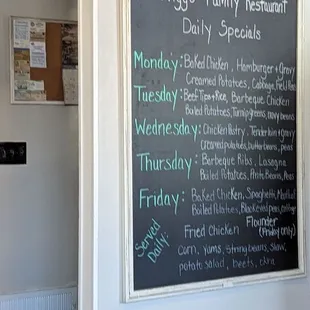 Family Restaurant
Daily Specials
Monday: Baked Chicken, Hamburger + Gravy
Creamed Potatoes, Cabbage, Field Peas
Tuesday: Beef Tips + Rice, Barbeque Chicken
Boiled Potatoes, Turnip greens, navy beans
Wednesday: Chicken Pastry, Tenderloin + gravy
Creamed potatoes, butter beans, peas
Thursday: Barbeque Ribs, Lasagna
Boiled Potatoes, Pinto Beans, Peas
Friday: Baked Chicken, Spaghetti, Meatloaf
Boiled Potatoes, Blackeyed peas, cabbage
Served
Daily:
Fried Chicken
Flounder
(Friday only)
Corn, yams, String beans, slaw,
potato salad, beets, okra